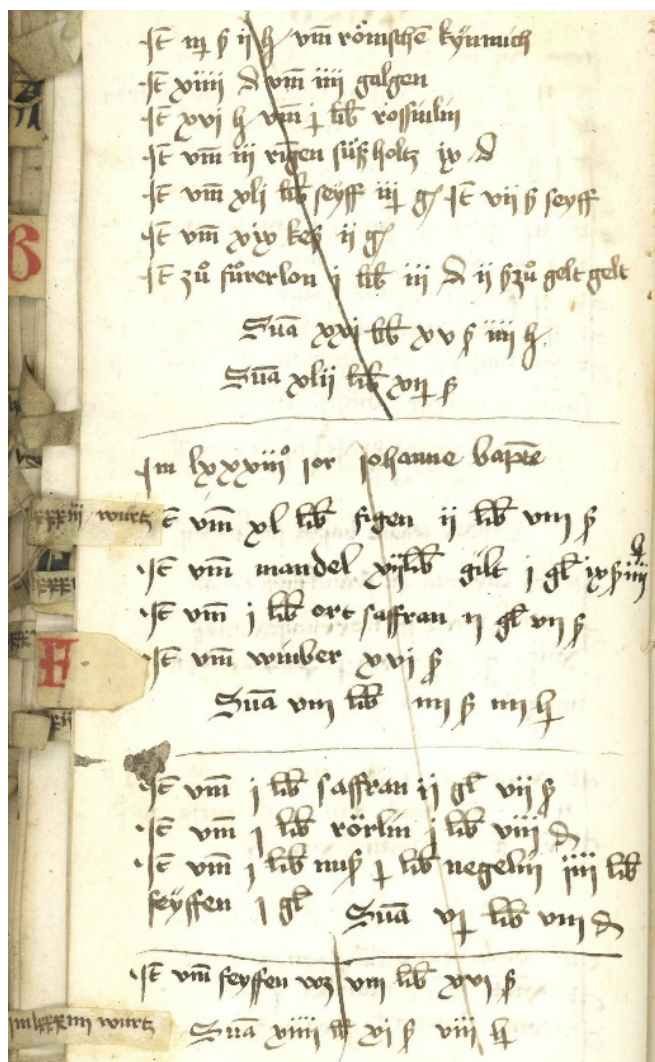 Jt iij ß ij h vm römschē kÿmmich
Jt xiiij d vm iiij galgen
Jt xvi h vm j lib rossinlin
Jt vm iij rigen süßholtz ix d
Jt vm xli lib seyff iij g Jt vij ß seyff
Jt vm xix keß ij g
Jt zů fůrerlon j lib iij d ij ß zů gelt gelt
Sūa xxi lib xv ß iiij h
Sūa xlij lib xij ß
Jm lxxxiijº ior johanne bapte
Jt vm xl lib figen ij lib viij ß
Jt vm mandel lib gilt j gl ix ß iiij h
Jt vm j lib ort saffran ij gl vij ß
Jt vm winber xvi ß
Sūa viij lib iiij ß iiij h
Jt vm j lib saffran ij gl vij ß
Jt vm j lib rörlin j lib viij d
Jt vm j lib nuß j lib negelin iiij lib
seyffen j gl Sūa vj lib viij d
Jt vm seyffen viij lib xvi ß
Sūa xiiij lib xi ß viij h
wurtz
F
wurtz